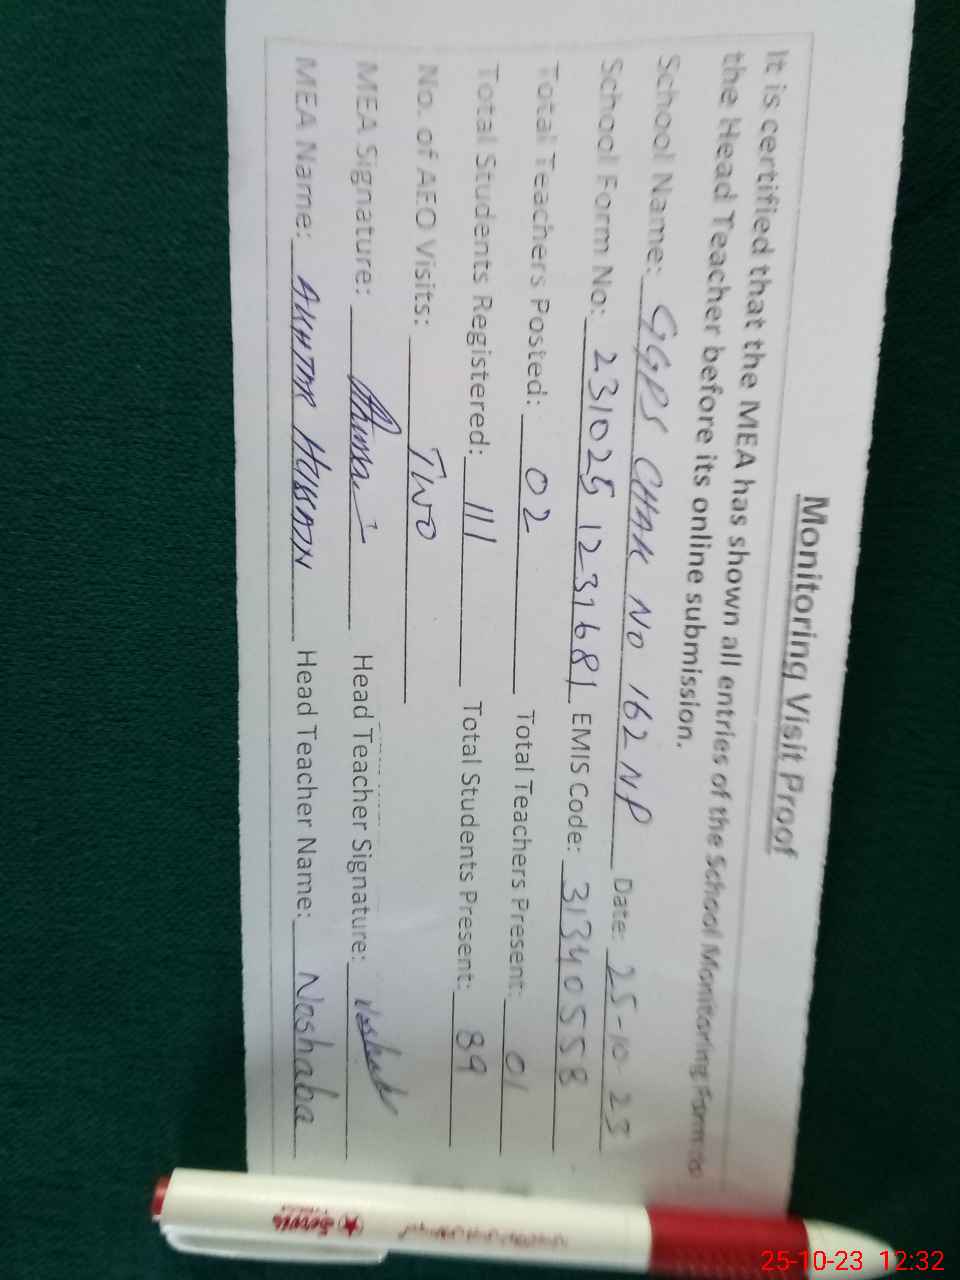 Monitoring Visit Proof
It is certified that the MEA has shown all entries of the School Monitoring Form to
the Head Teacher before its online submission.
School Name: GGPS CHAK NO 162 NP Date: 25-10-23
School Form No: 231025 1231681 EMIS Code: 31340558
Total Teachers Posted: 02 Total Teachers Present: 01
Total Students Registered: 111 Total Students Present: 89
No. of AEO Visits: Two
MEA Signature: Head Teacher Signature:
MEA Name: Head Teacher Name: Noshaba
25-10-23 12:32